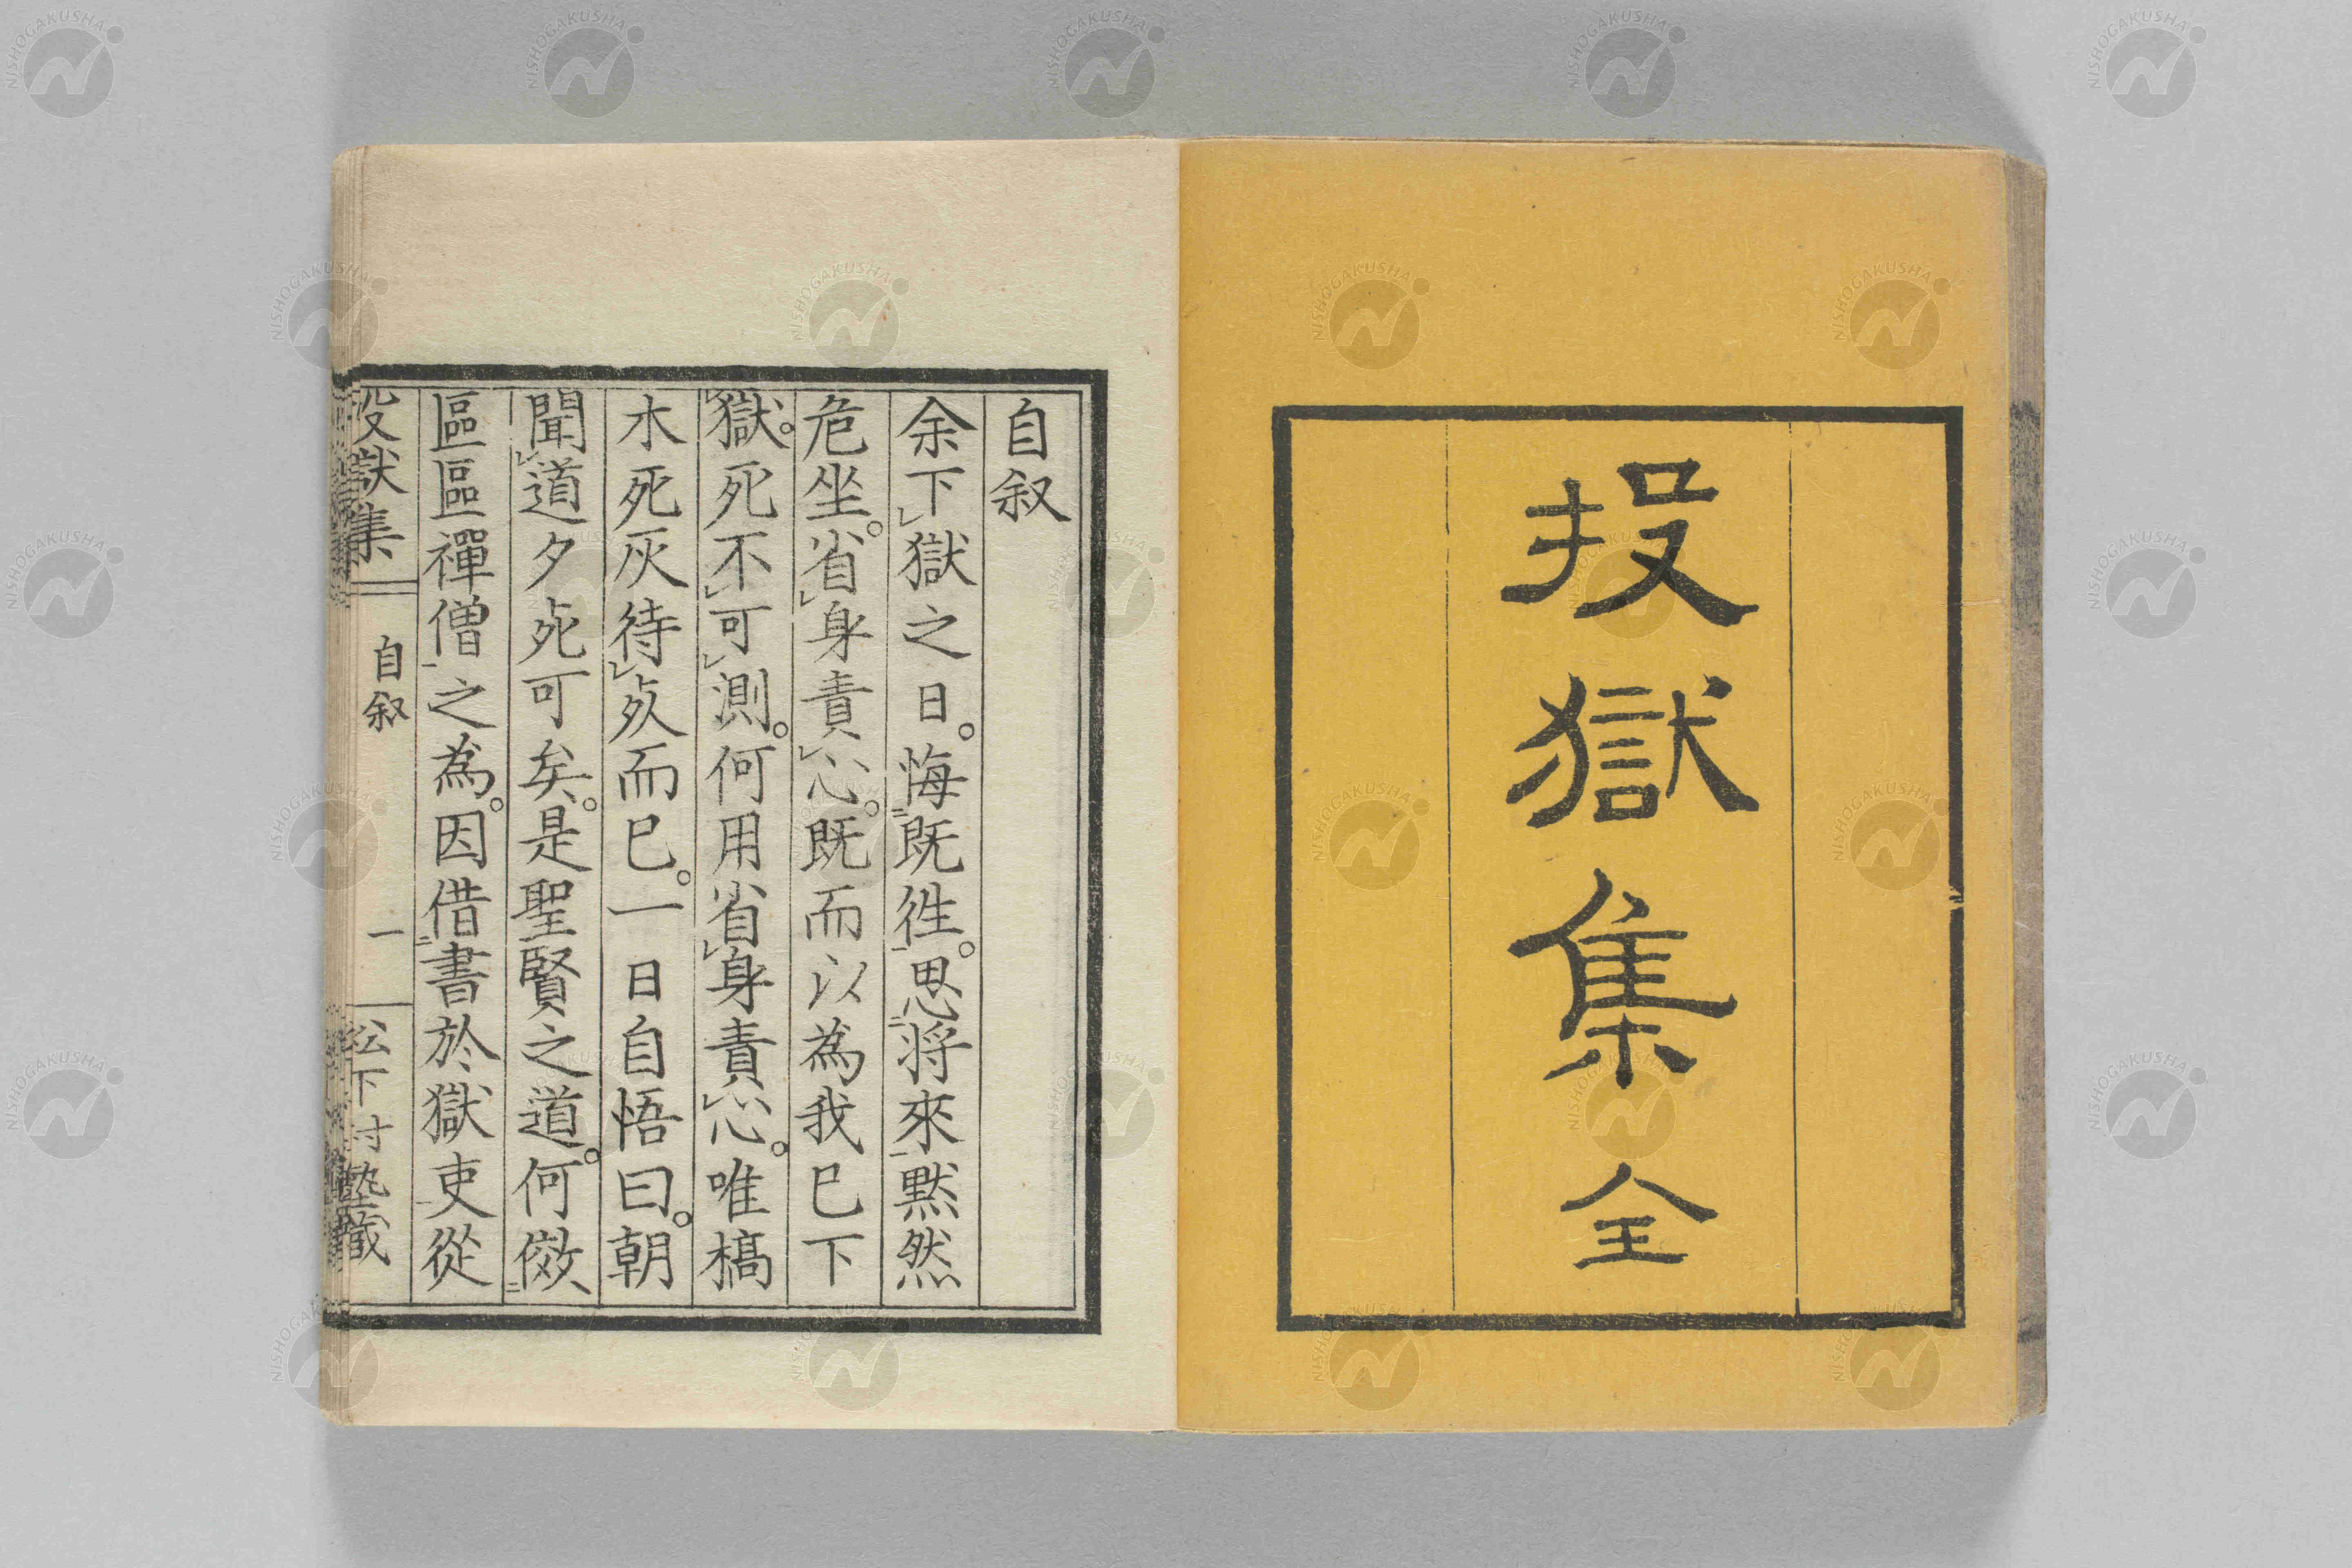 投獄集 全
自叙
余下獄之日。悔既徃。思將來默然
危坐。省身責心。既而以為我已下
獄。死不可測。何用省身責心。唯槁
木死灰待死而已。一日自悟曰。朝
聞道夕死可矣。是聖賢之道。何傚
區區禪僧之為。因借書於獄吏從
投獄集 自叙 一 松下村塾藏
NISHOGAKUSHA